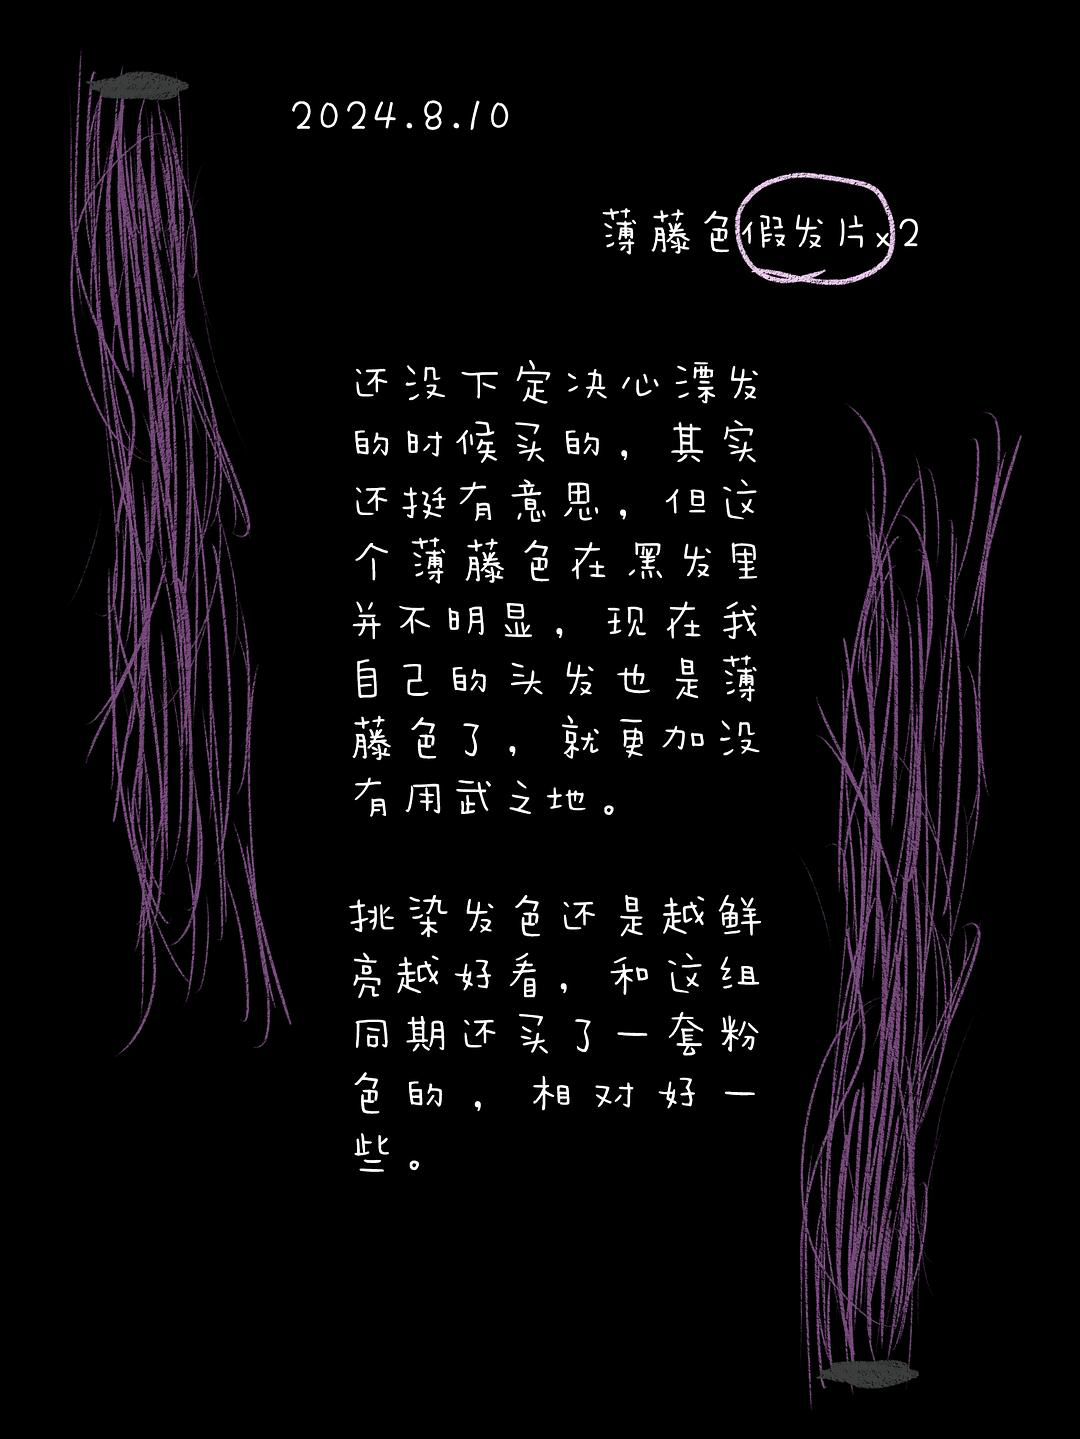 2024.8.10
薄藤色假发片x2
还没下定决心漂发
的时候买的，其实
还挺有意思，但这
个薄藤色在黑发里
并不明显，现在我
自己的头发也是薄
藤色了，就更加没
有用武之地。
挑染发色还是越鲜
亮越好看，和这组
同期还买了一套粉
色的，相对好一
些。